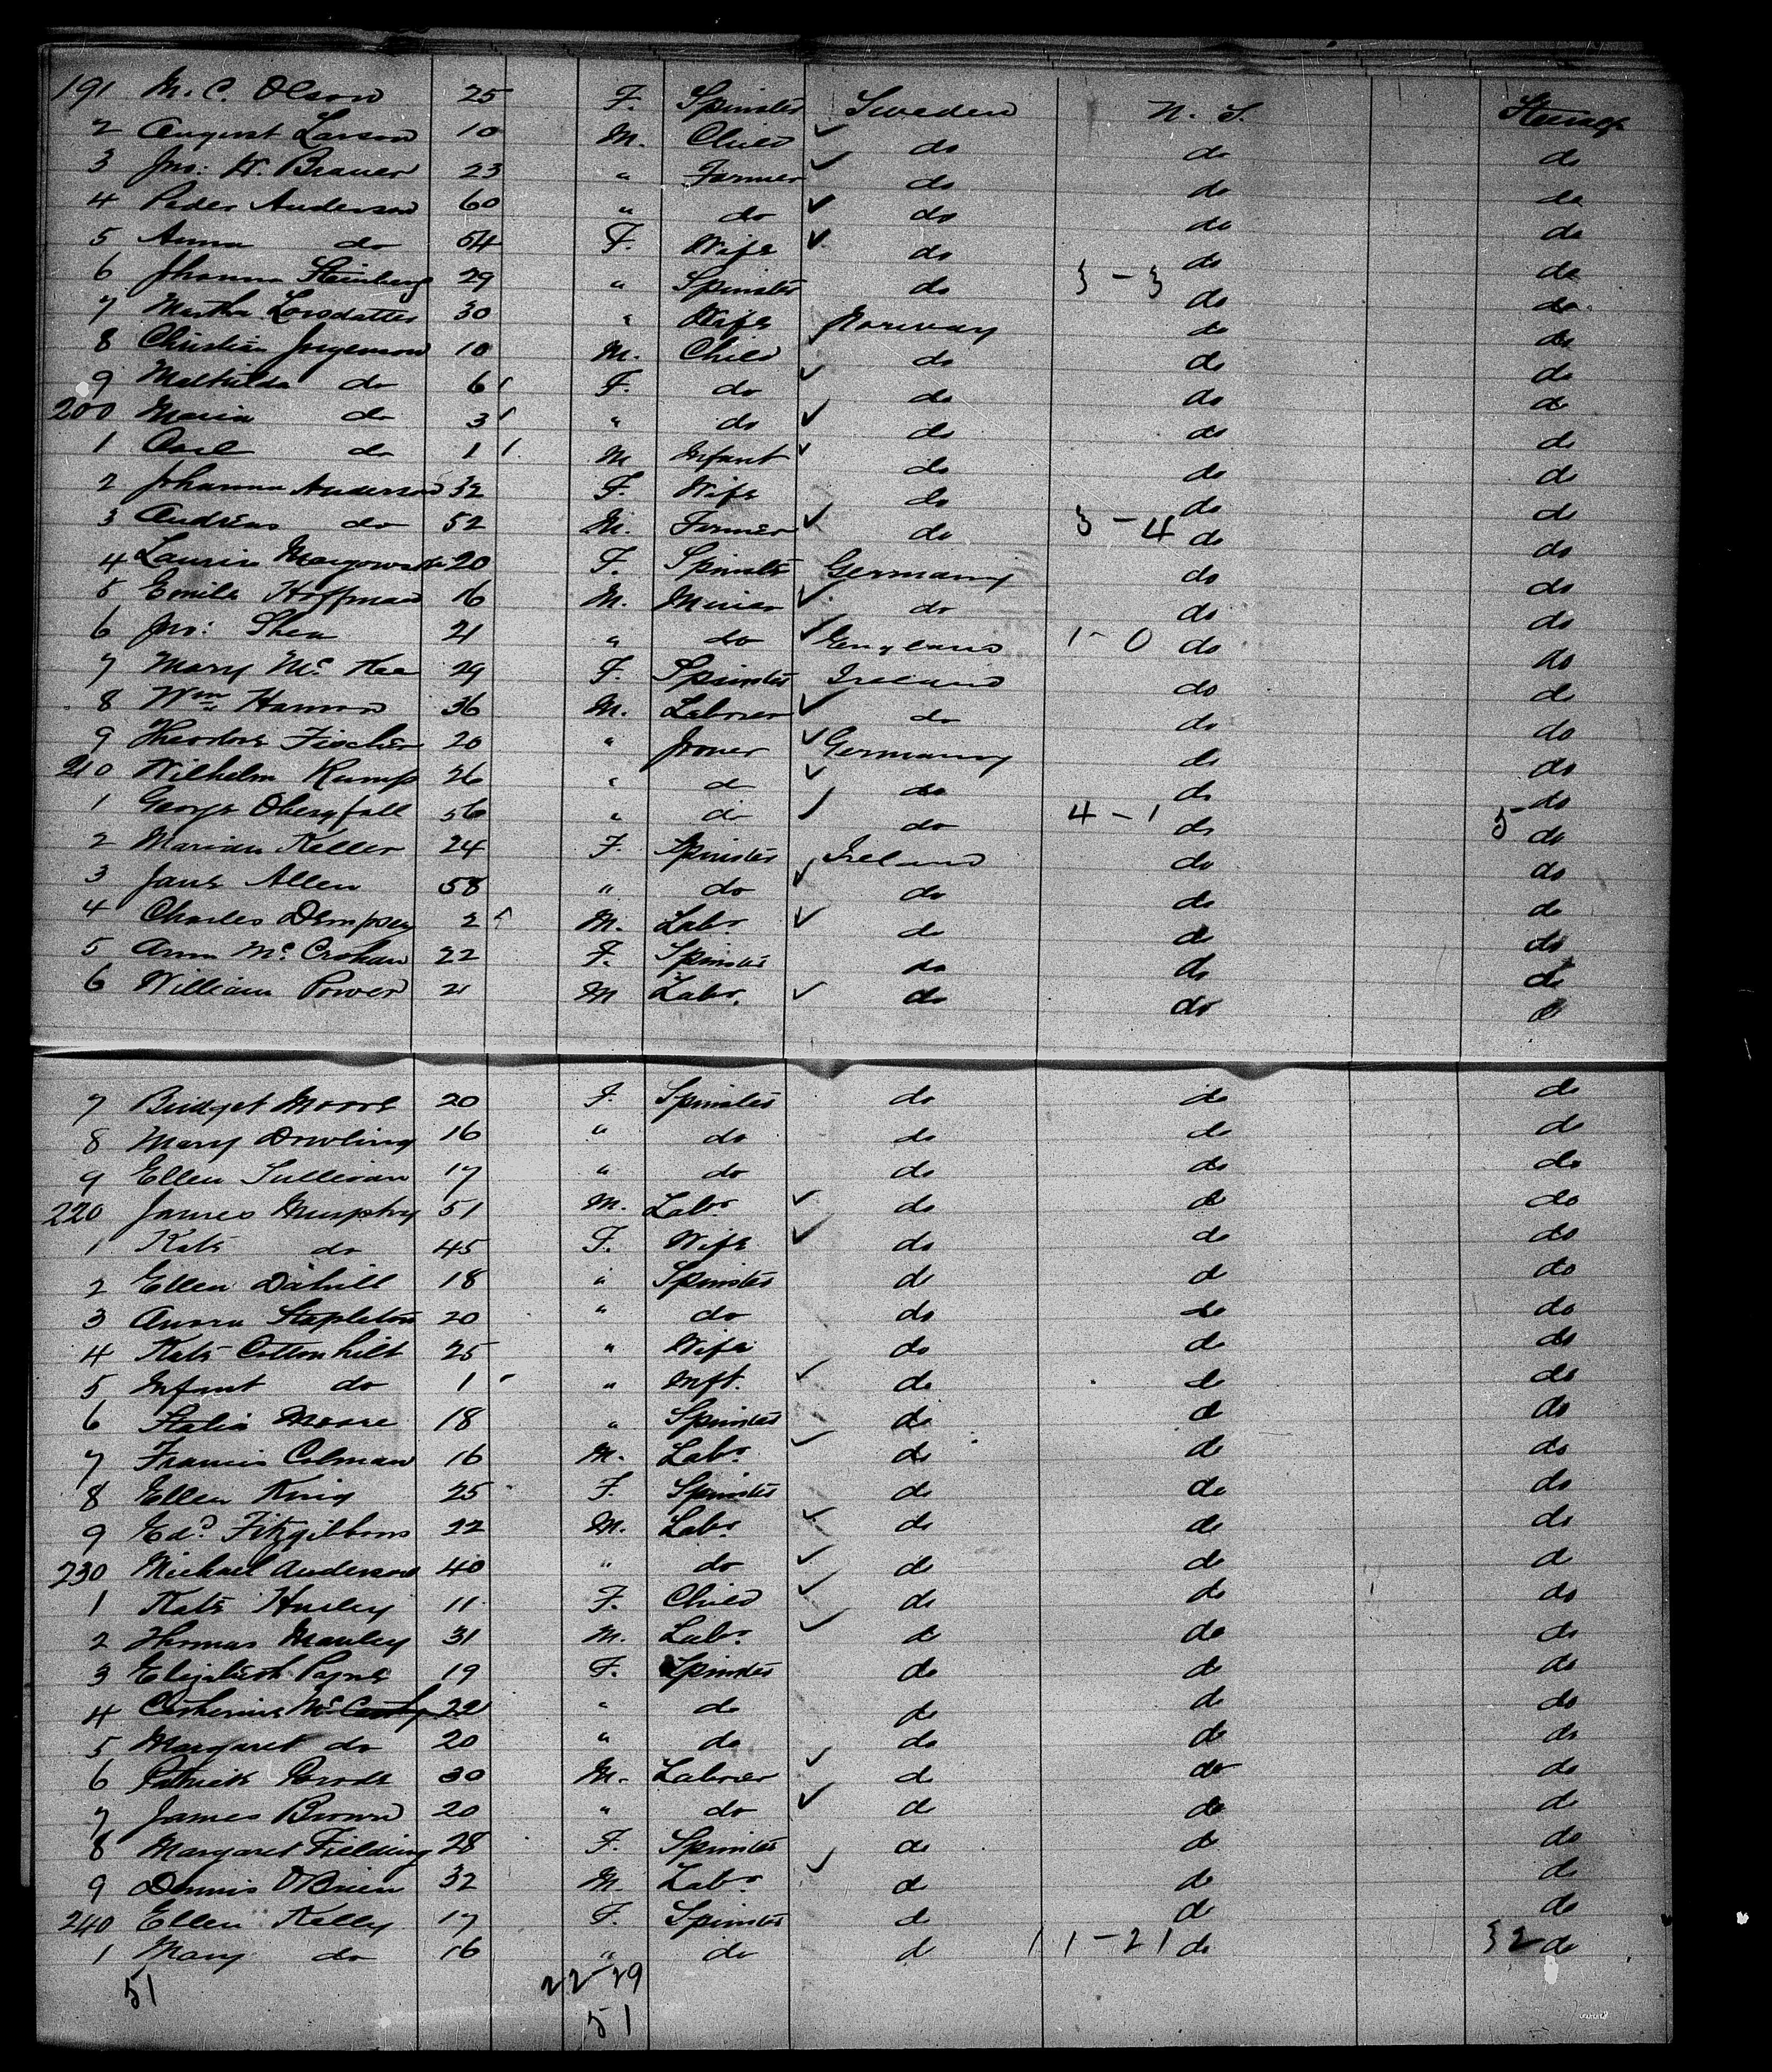 191 M. C. Olson 25 F. Spinster Sweden N. S. Steerage
2 August Larson 10 M. Child do do do
3 Jno: W. Brauer 23 " Farmer do do do
4 Peder Anderson 60 " do do do do
5 Anna do 54 F. Wife do do do
6 Jhanna Steinberg 29 " Spinster do 3 - 3 do do
7 Martha Lorsdatter 30 " Wife Norway do do
8 Christian Jorgenson 10 M. Child do do do
9 Mathilda do 6 F. do do do do
200 Maria do 3 " do do do do
1 Axel do 1 M Infant do do do
2 Johanna Anderson 32 F. Wife do do do
3 Andreas do 52 M. Farmer do 3 - 4 do do
4 Laurin 20 F. Spinster Germany do do
5 Emile Hoffman 16 M. Minier do do do
6 Jno: Shea 21 " do England 1 - 0 do do
7 Mary Mc Kee 29 F. Spinster Ireland do do
8 Wm Hannon 36 M. Laborer do do do
9 Theodore Fischer 20 " Joiner Germany do do
210 Wilhelm Kump 26 " do do do do
1 George Obergfall 56 " do do 4 - 1 do 5 do
2 Marian Keller 24 F. Spinster Ireland do do
3 Jane Allen 58 " do do do do
4 Charles Dempsey 2 M. Labr do do do
5 Ann Mc Crohan 22 F. Spinster do do do
6 William Power 21 M Labr. do do do
7 Bridget Moore 20 F. Spinster do do do
8 Mary Dowling 16 " do do do do
9 Ellen Sullivan 17 " do do do do
220 James Murphy 51 M. Labr do do do
1 Kate do 45 F. Wife do do do
2 Ellen Dahill 18 " Spinster do do do
3 Anora Stapleton 20 " do do do do
4 Kate Cottonhilt 25 " Wife do do do
5 Infant do 1 " Inft. do do do
6 Statia Moore 18 " Spinster do do do
7 Francis Colman 16 M. Labr do do do
8 Ellen King 25 F. Spinster do do do
9 Edd Fitzgibbons 22 M. Labr do do do
230 Michael Anderson 40 " do do do do
1 Kate Hurley 11 F. Child do do do
2 Thomas Manley 31 M. Labr do do do
3 Elizabeth Payne 19 F. Spinster do do do
4 Catherine McCarthy 22 " do do do do
5 Margaret do 20 " do do do do
6 Patrick 30 M. Laborer do do do
7 James Brown 20 " do do do do
8 Margaret Fielding 28 F. Spinster do do do
9 Dennis O'Brien 32 M Labr do do do
240 Ellen Kelly 17 F. Spinster do do do
1 Mary do 16 " do do 11 - 21 do 32 do
51 22 29
51